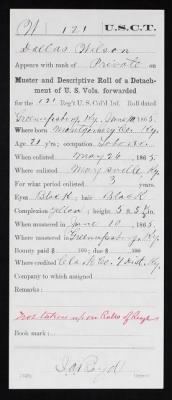 W | 121 | U.S.C.T.
Dallas Wilson
Appears with rank of Private on
Muster and Descriptive Roll of a Detach-
ment of U. S. Vols. forwarded
for the 121 Reg't U.S. Col'd Inf. Roll dated
Greenupsburg, Ky., June 10, 1865.
Where born Montgomery Co. Ky.
Age 21 y'rs; occupation
When enlisted May 26, 1865.
Where enlisted Maysville, Ky.
For what period enlisted 3 years.
Eyes Black; hair Black
Complexion ; height 5 ft. in.
When mustered in June 10, 1865.
Where mustered in Greenupsburg, Ky.
Bounty paid $ 100; due $ 100
Where credited Clark Co. Dist. Ky.
Company to which assigned
Remarks:
Not taken up on Rolls of Regt
Book mark: